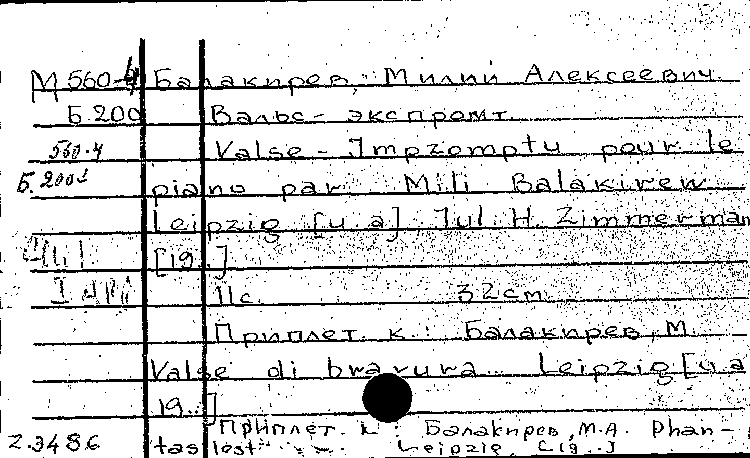 М 560-4 Балакирев, Милий Алексеевич.
Б.200 Вальс-экспромт.
560.4 Valse-Impromptu pour le
Б.2001 piano par Mili Balakirew
Leipzig [u.a] Jul. H. Zimmerman
[19..]
11с. 32см.
Приплет. к: Балакирев, М.
Valse di bravura. Leipzig [u.a
19..]
Приплет. к: Балакирев, М.А. Phan-
2.3486 tasiest Leipzig, [19..]